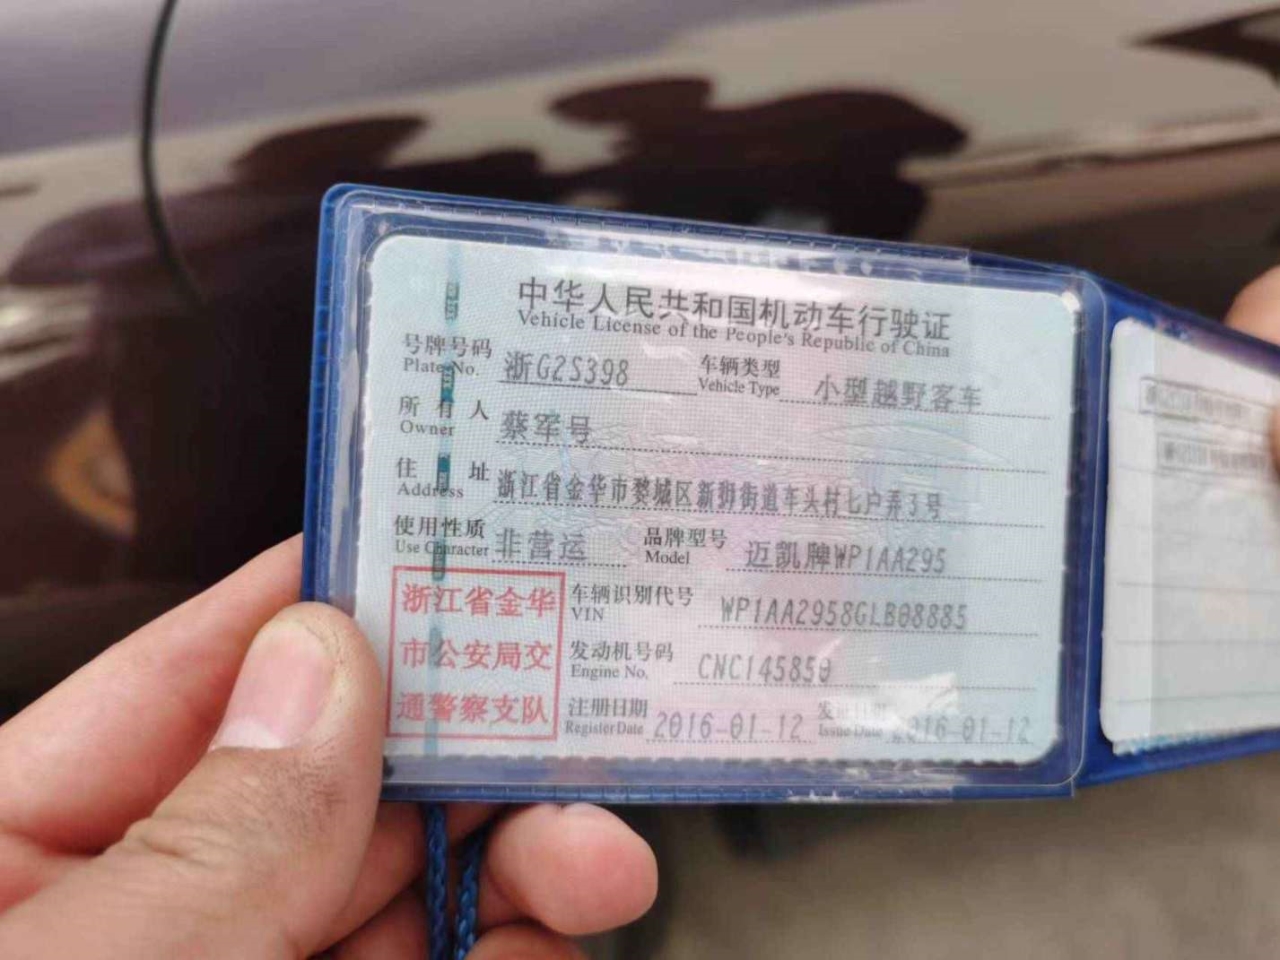 中华人民共和国机动车行驶证
Vehicle License of the People's Republic of China
号牌号码 浙G2S398 车辆类型 小型越野客车
Plate No. Vehicle Type
所有人 蔡军号
Owner
住址 浙江省金华市婺城区新狮街道车头村七户弄3号
Address
使用性质 非营运 品牌型号 迈凯牌WP1AA295
Use Character Model
浙江省金华
市公安局交
通警察支队
车辆识别代号 WP1AA2958GLB08885
VIN
发动机号码 CNC145850
Engine No.
注册日期 2016-01-12 发证日期 2016-01-12
Register Date Issue Date